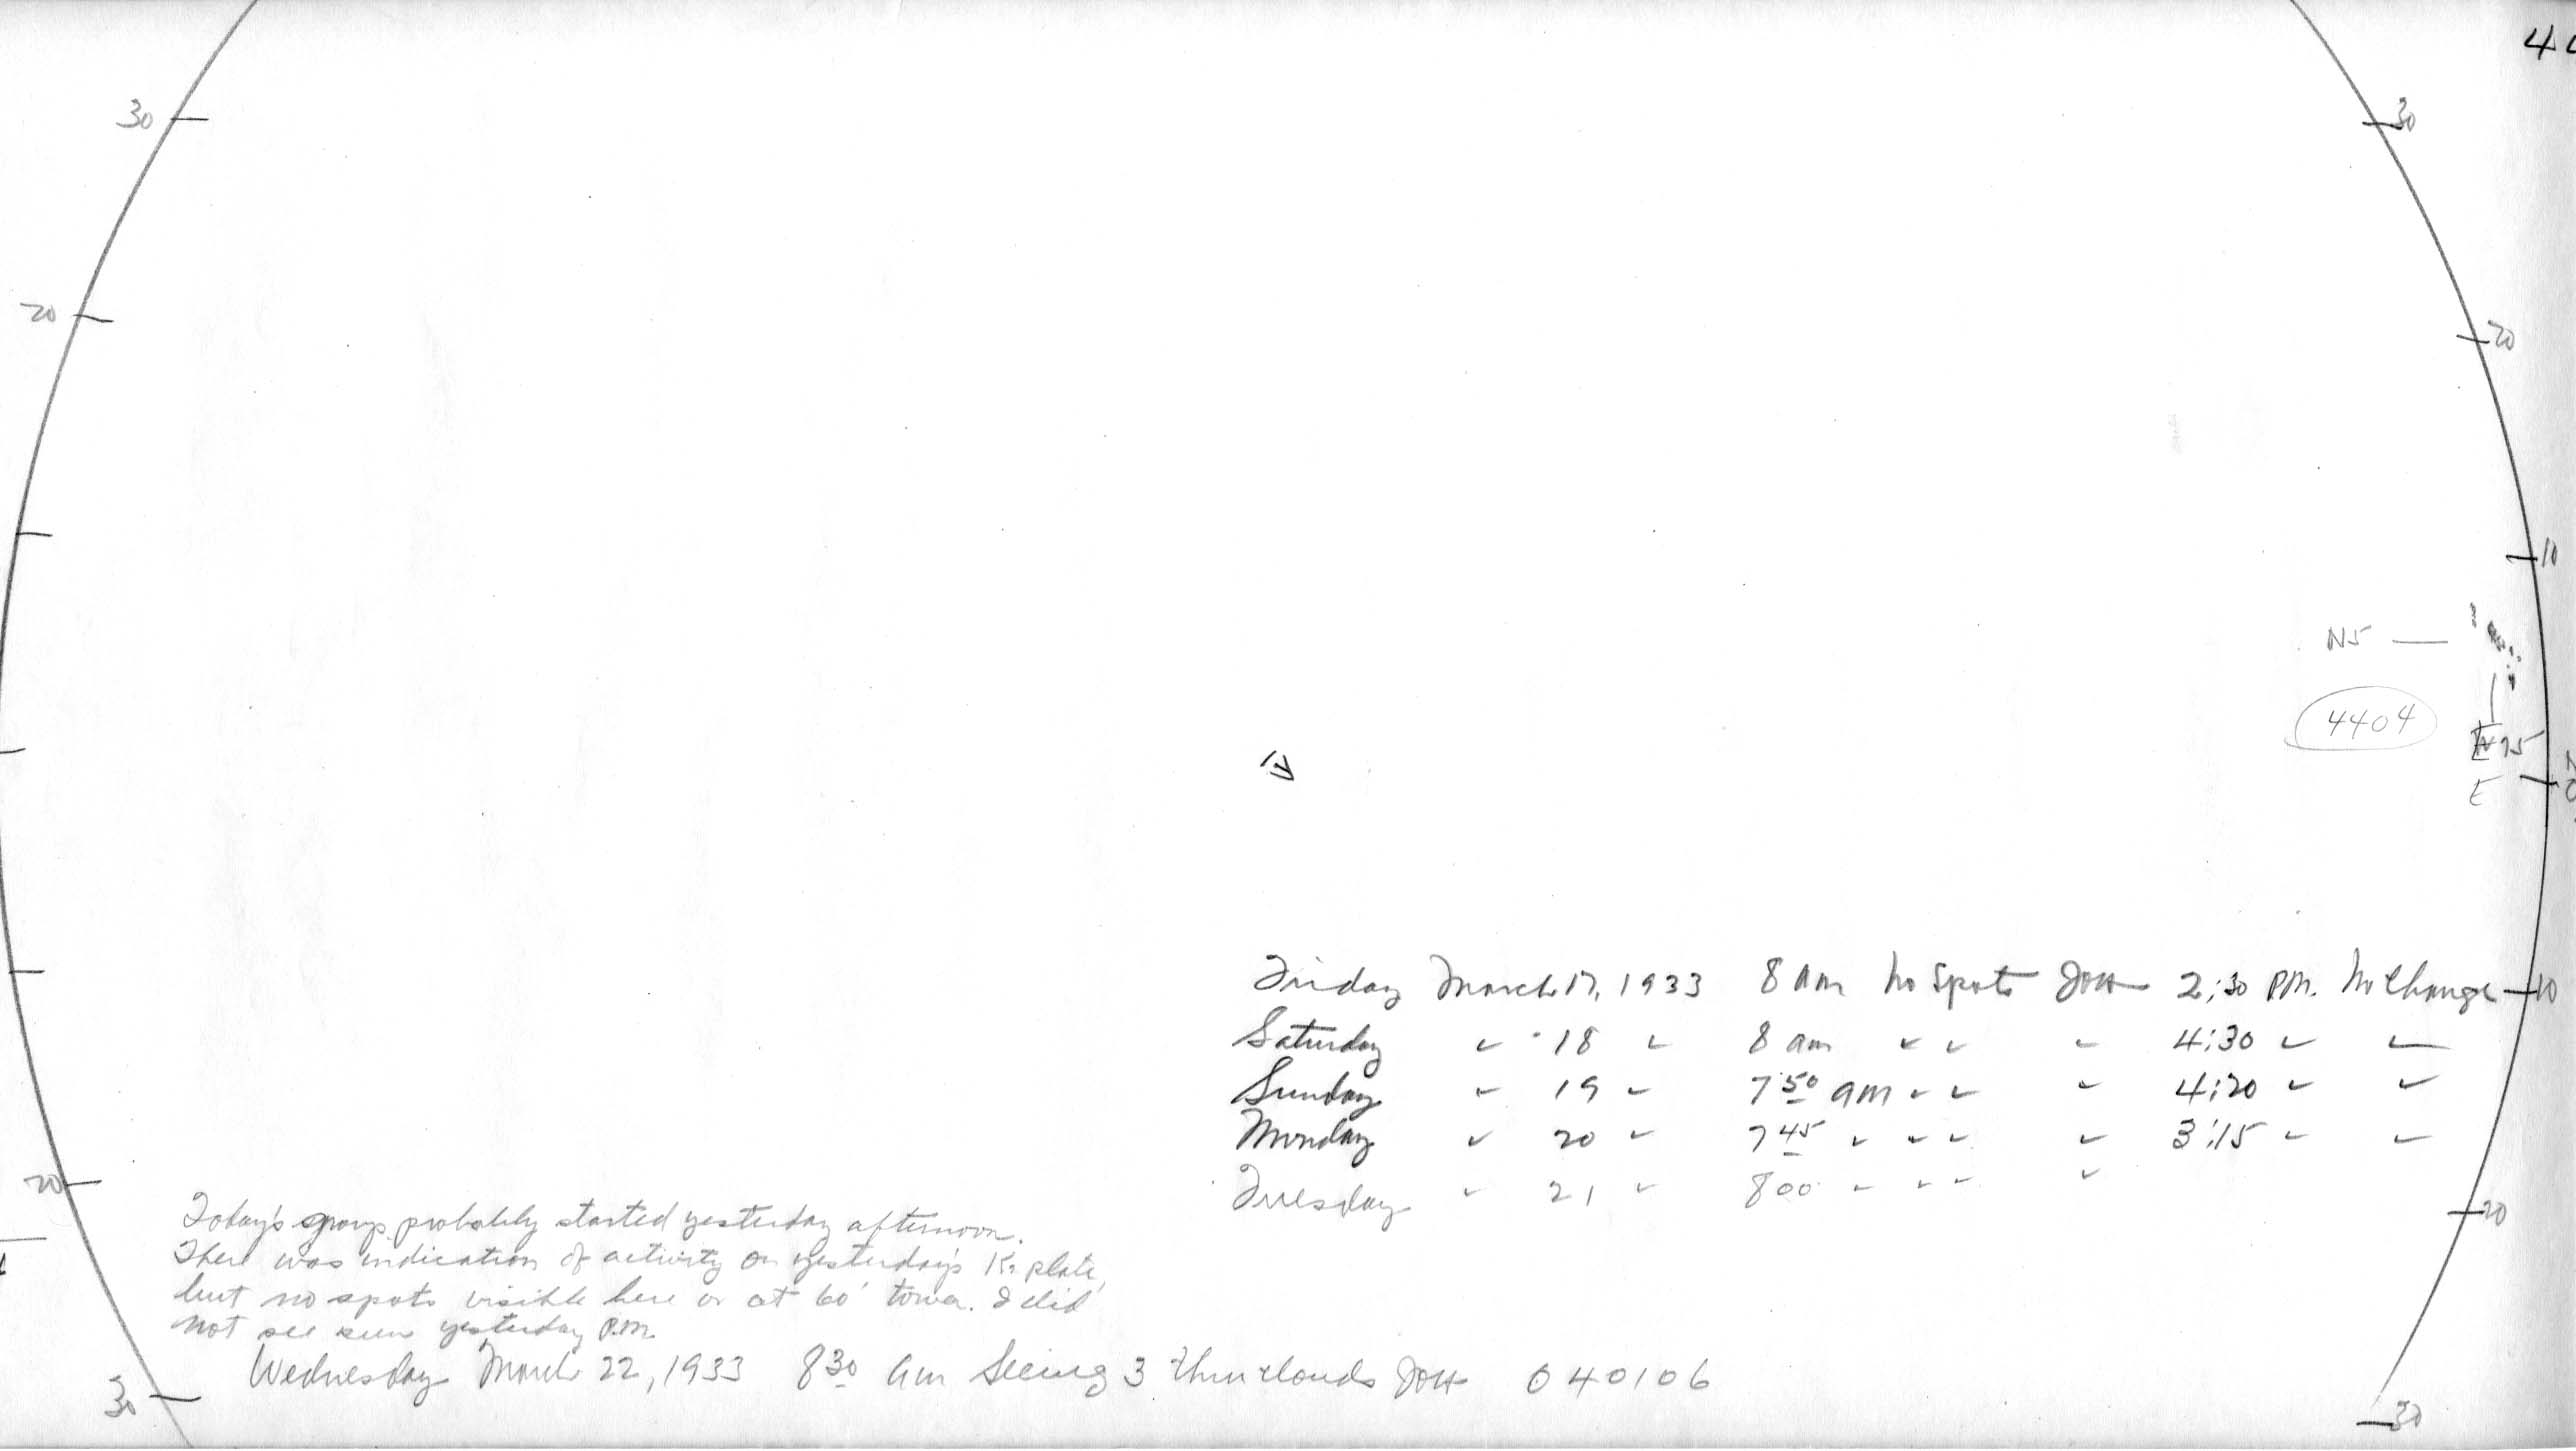 44
30 30
20 20
10
N5 —
4404
E75
E
Friday March 17, 1933 8 am No Spots JOH 2:30 P.M. No Change 10
Saturday " 18 " 8 am " " " 4:30 " "
Sunday " 19 " 7 50 am " " " 4:20 " "
Monday " 20 " 7 45 " " " " 3:15 " "
Tuesday " 21 " 8 00 " " " "
20 20
Today's group probably started yesterday afternoon.
There was indication of activity on yesterday's K2 plate,
but no spots visible here or at 60' tower. I did
not see sun yesterday P.M.
Wednesday March 22, 1933 8 30 am Seeing 3 thru clouds JOH 040106
30 30